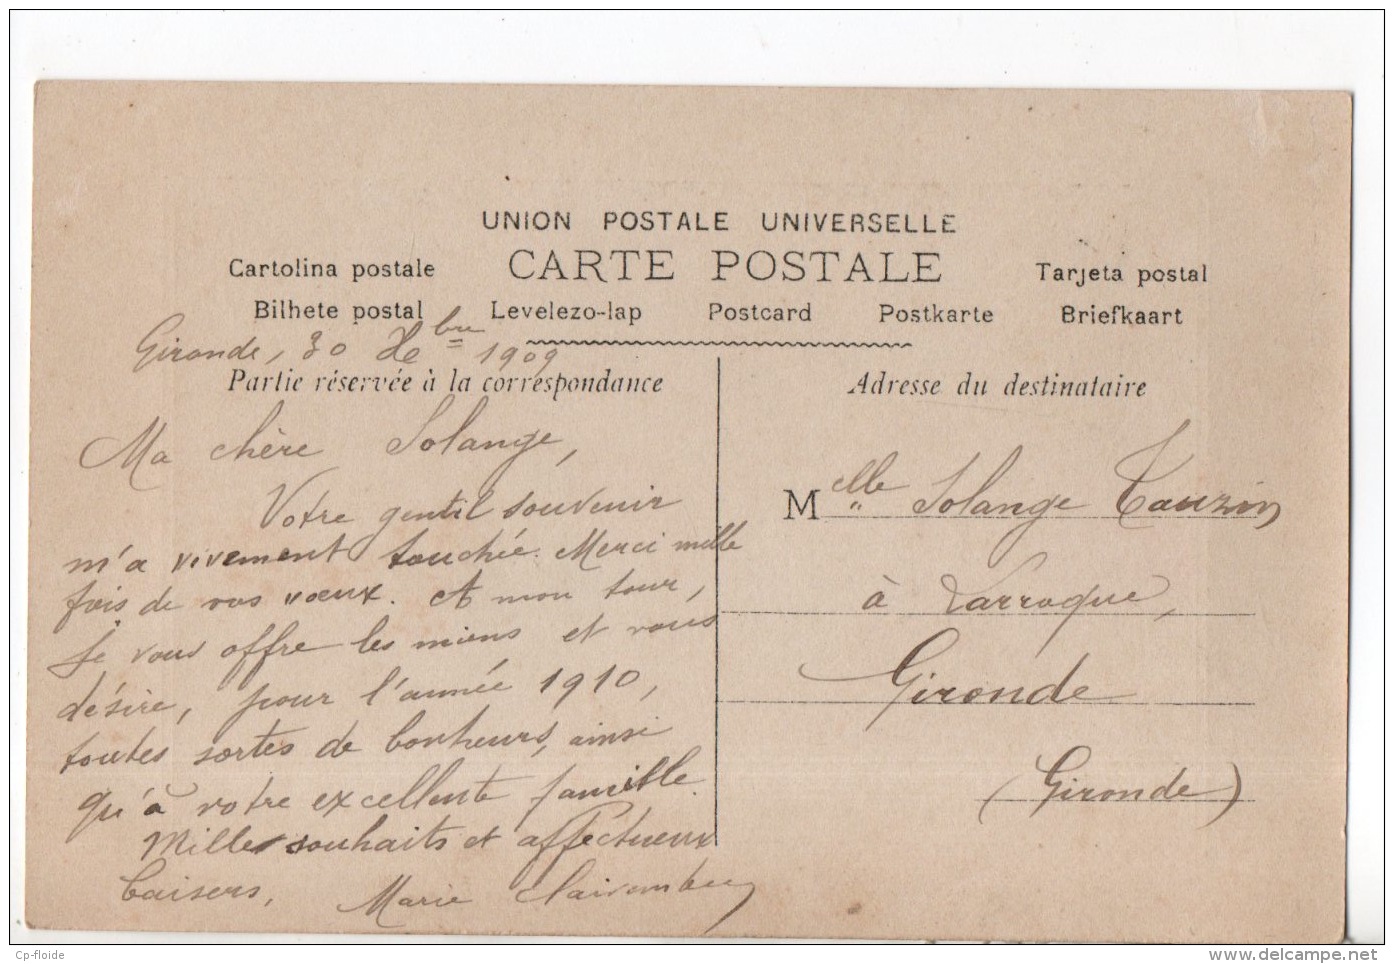 UNION POSTALE UNIVERSELLE
CARTE POSTALE
Cartolina postale
Tarjeta postal
Bilhete postal Levelezo-lap Postcard Postkarte Briefkaart
Gironde, 30 Xbre 1909
Partie réservée à la correspondance
Ma chère Solange,
Votre gentil souvenir
m'a vivement touchée. Merci mille
fois de vos vœux. A mon tour,
Je vous offre les miens et vous
désire, pour l'année 1910,
toutes sortes de bonheurs, ainsi
qu'à votre excellente famille.
Mille souhaits et affectueux
baisers. Marie
Adresse du destinataire
Melle Solange Tauzin
à Larroque,
Gironde
(Gironde)
Cp-floide
delcampe.net